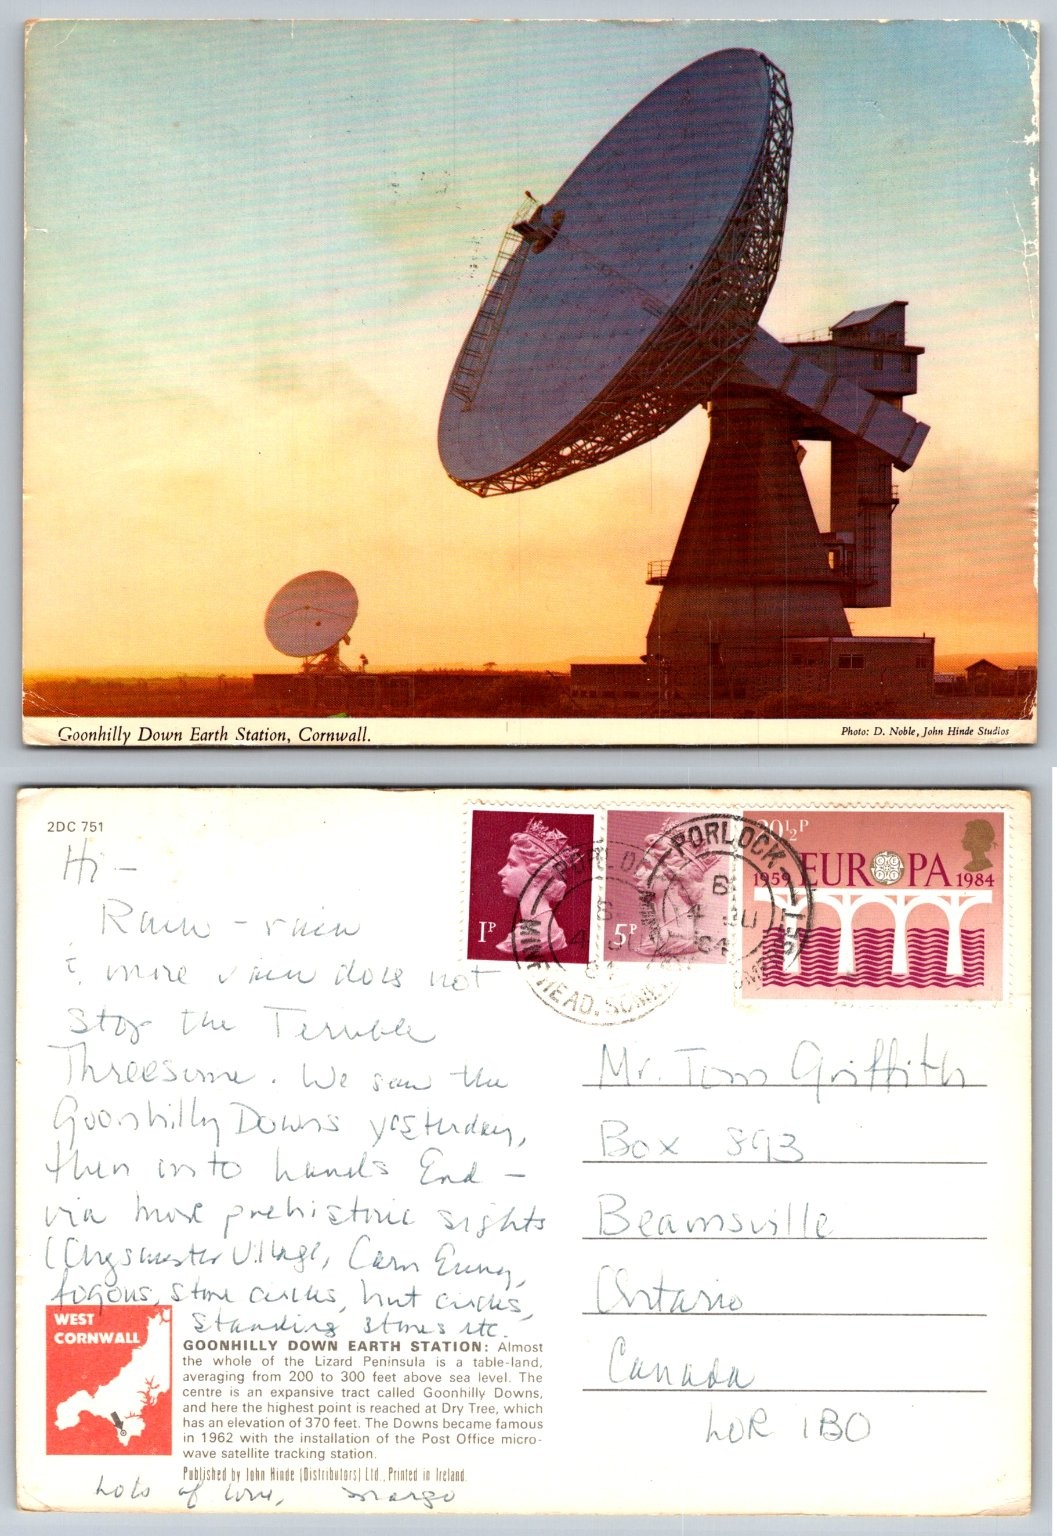 Goonhilly Down Earth Station, Cornwall.
Photo: D. Noble, John Hinde Studios
2DC 751
1P
5P
20½P
EUROPA
1959
1984
PORLOCK.
MINEHEAD, SOMERSET
4 JU
84
Hi -
Rain - rain
& more rain does not
stop the Terrible
Threesome. We saw the
Goonhilly Downs yesterday,
then on to Lands End -
via more prehistoric sights
(Chysauster Village, Carn Euny,
fogous, stone circles, hut circles,
standing stones etc.
Lots of love, Margo
Mr. Tom Griffith
Box 893
Beamsville
Ontario
Canada
L0R 1B0
WEST
CORNWALL
GOONHILLY DOWN EARTH STATION: Almost
the whole of the Lizard Peninsula is a table-land,
averaging from 200 to 300 feet above sea level. The
centre is an expansive tract called Goonhilly Downs,
and here the highest point is reached at Dry Tree, which
has an elevation of 370 feet. The Downs became famous
in 1962 with the installation of the Post Office micro-
wave satellite tracking station.
Published by John Hinde (Distributors) Ltd., Printed in Ireland.